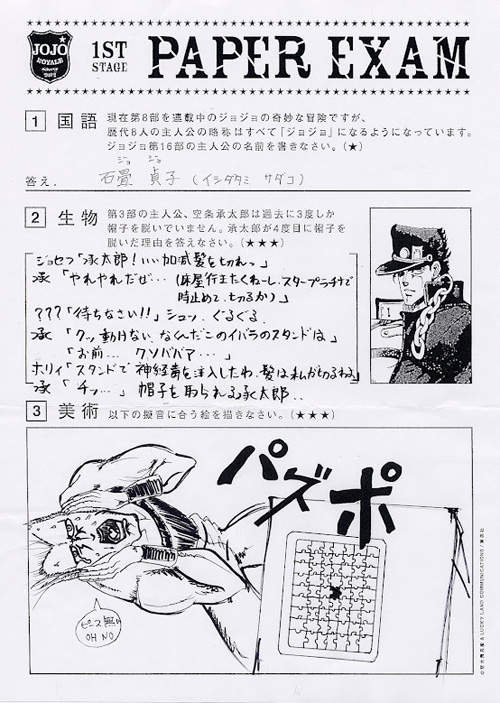 JOJO
ROYALE
1ST
STAGE
PAPER EXAM
1 国語 現在第8部を連載中のジョジョの奇妙な冒険ですが、
歴代8人の主人公の略称はすべて「ジョジョ」になるようになっています。
ジョジョ第16部の主人公の名前を書きなさい。(★)
ジョ ジョ
答え. 石畳 貞子 (イシダタミ サダコ)
2 生物 第3部の主人公、空条承太郎は過去に3度しか
帽子を脱いでいません。承太郎が4度目に帽子を
脱いだ理由を答えなさい。(★★★)
ジョセフ「承太郎!いい加減髪を切れっ」
承「やれやれだぜ…(床屋行きたくねーし、スタープラチナで
時止めて、切るか)」
???「待ちなさい!!」シュッ、ぐるぐる
承「クッ、動けない、なんだこのイバラのスタンドは」
「お前… クソババア…」
ホリィ「スタンドで神経毒を注入したわ、髪は私が切るわね」
承「チッ…」 帽子を取られる承太郎..
3 美術 以下の擬音に合う絵を描きなさい。(★★★)
パズポ
ピース無い
OH NO
©荒木飛呂彦 & LUCKY LAND COMMUNICATIONS / 集英社